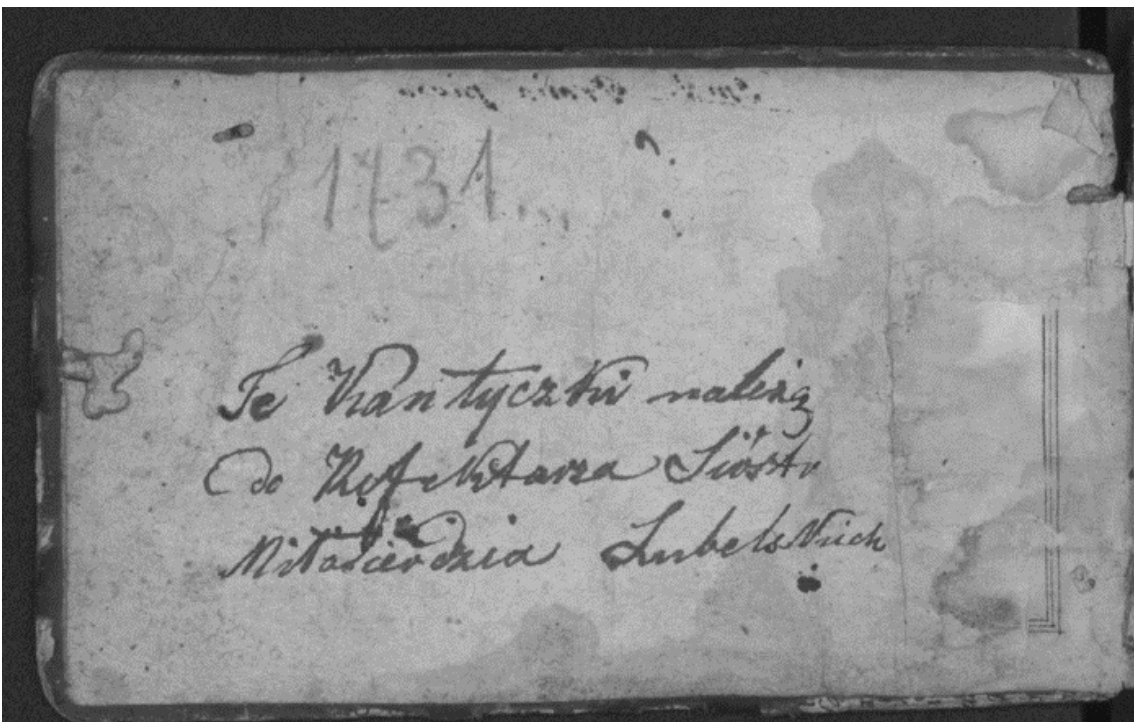 1731...
Te Kantyczki należą
do Refektarza Sióstr
Miłosierdzia Lubelskich